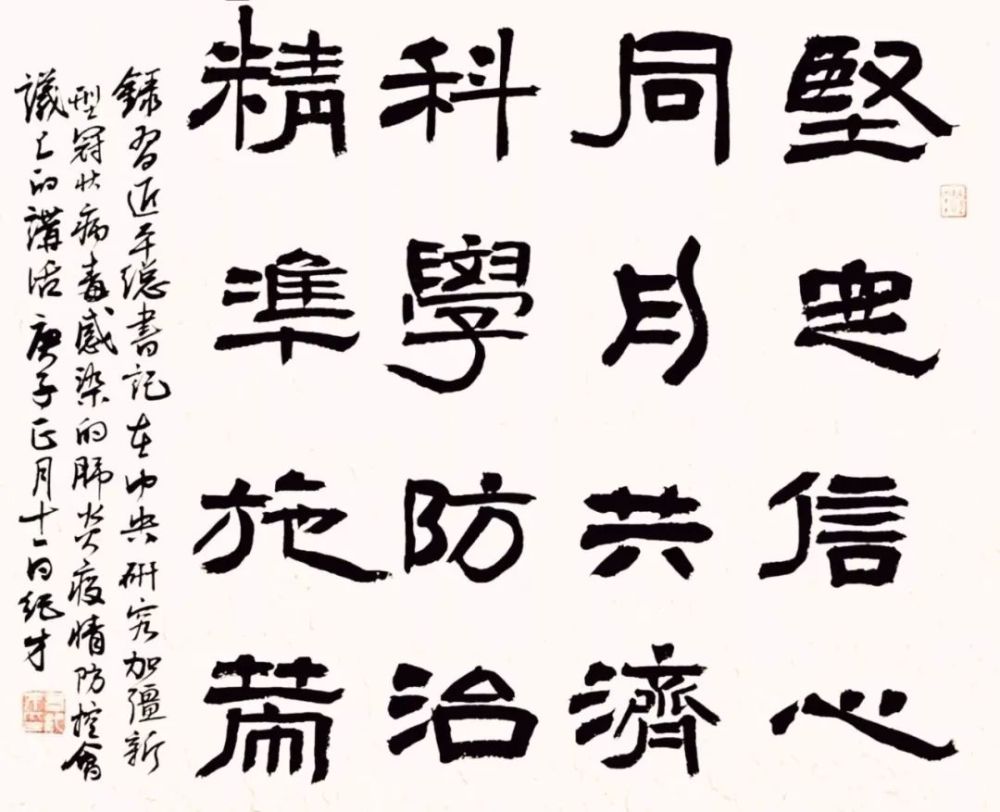 堅定信心
同舟共濟
科學防治
精準施策
錄習近平總書記在中央研究加彊新
型冠狀病毒感染的肺炎疫情防控會
議上的講話庚子正月十一日紀才